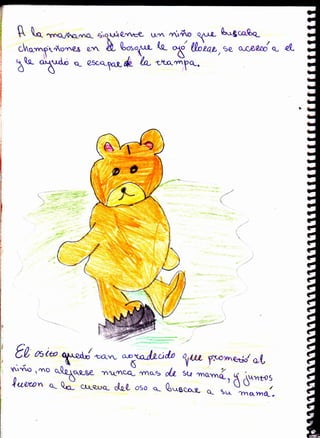 A la mañana siguiente un niño que buscaba
champiñones en el bosque le oyó llorar, se acercó a él
y le ayudó a escapar de la trampa.
El osito quedó tan agradecido que prometió al
niño, no alejarse nunca mas de su mamá, y juntos
fueron a la cueva del oso a buscar a su mamá.